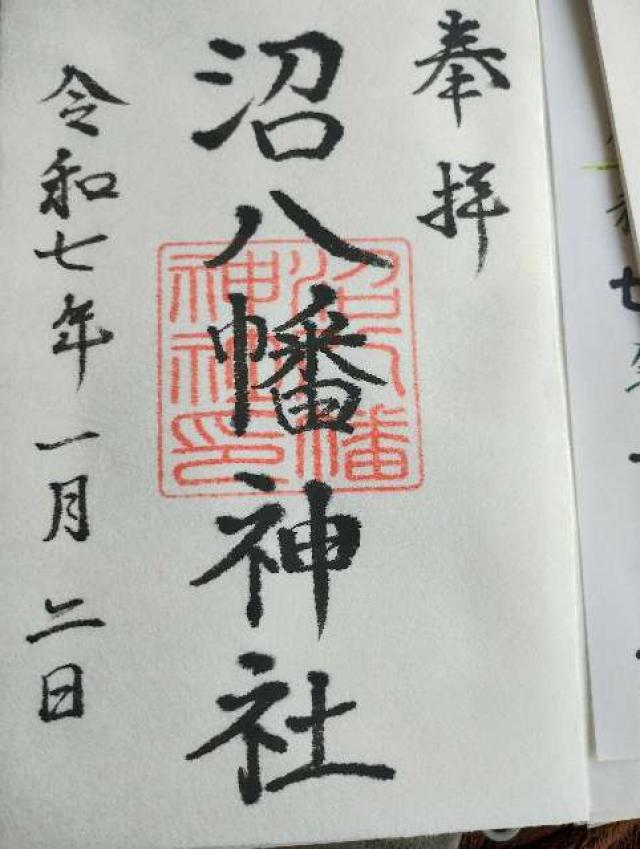 奉拝
沼八幡神社
沼八幡神社印
令和七年一月二日
七